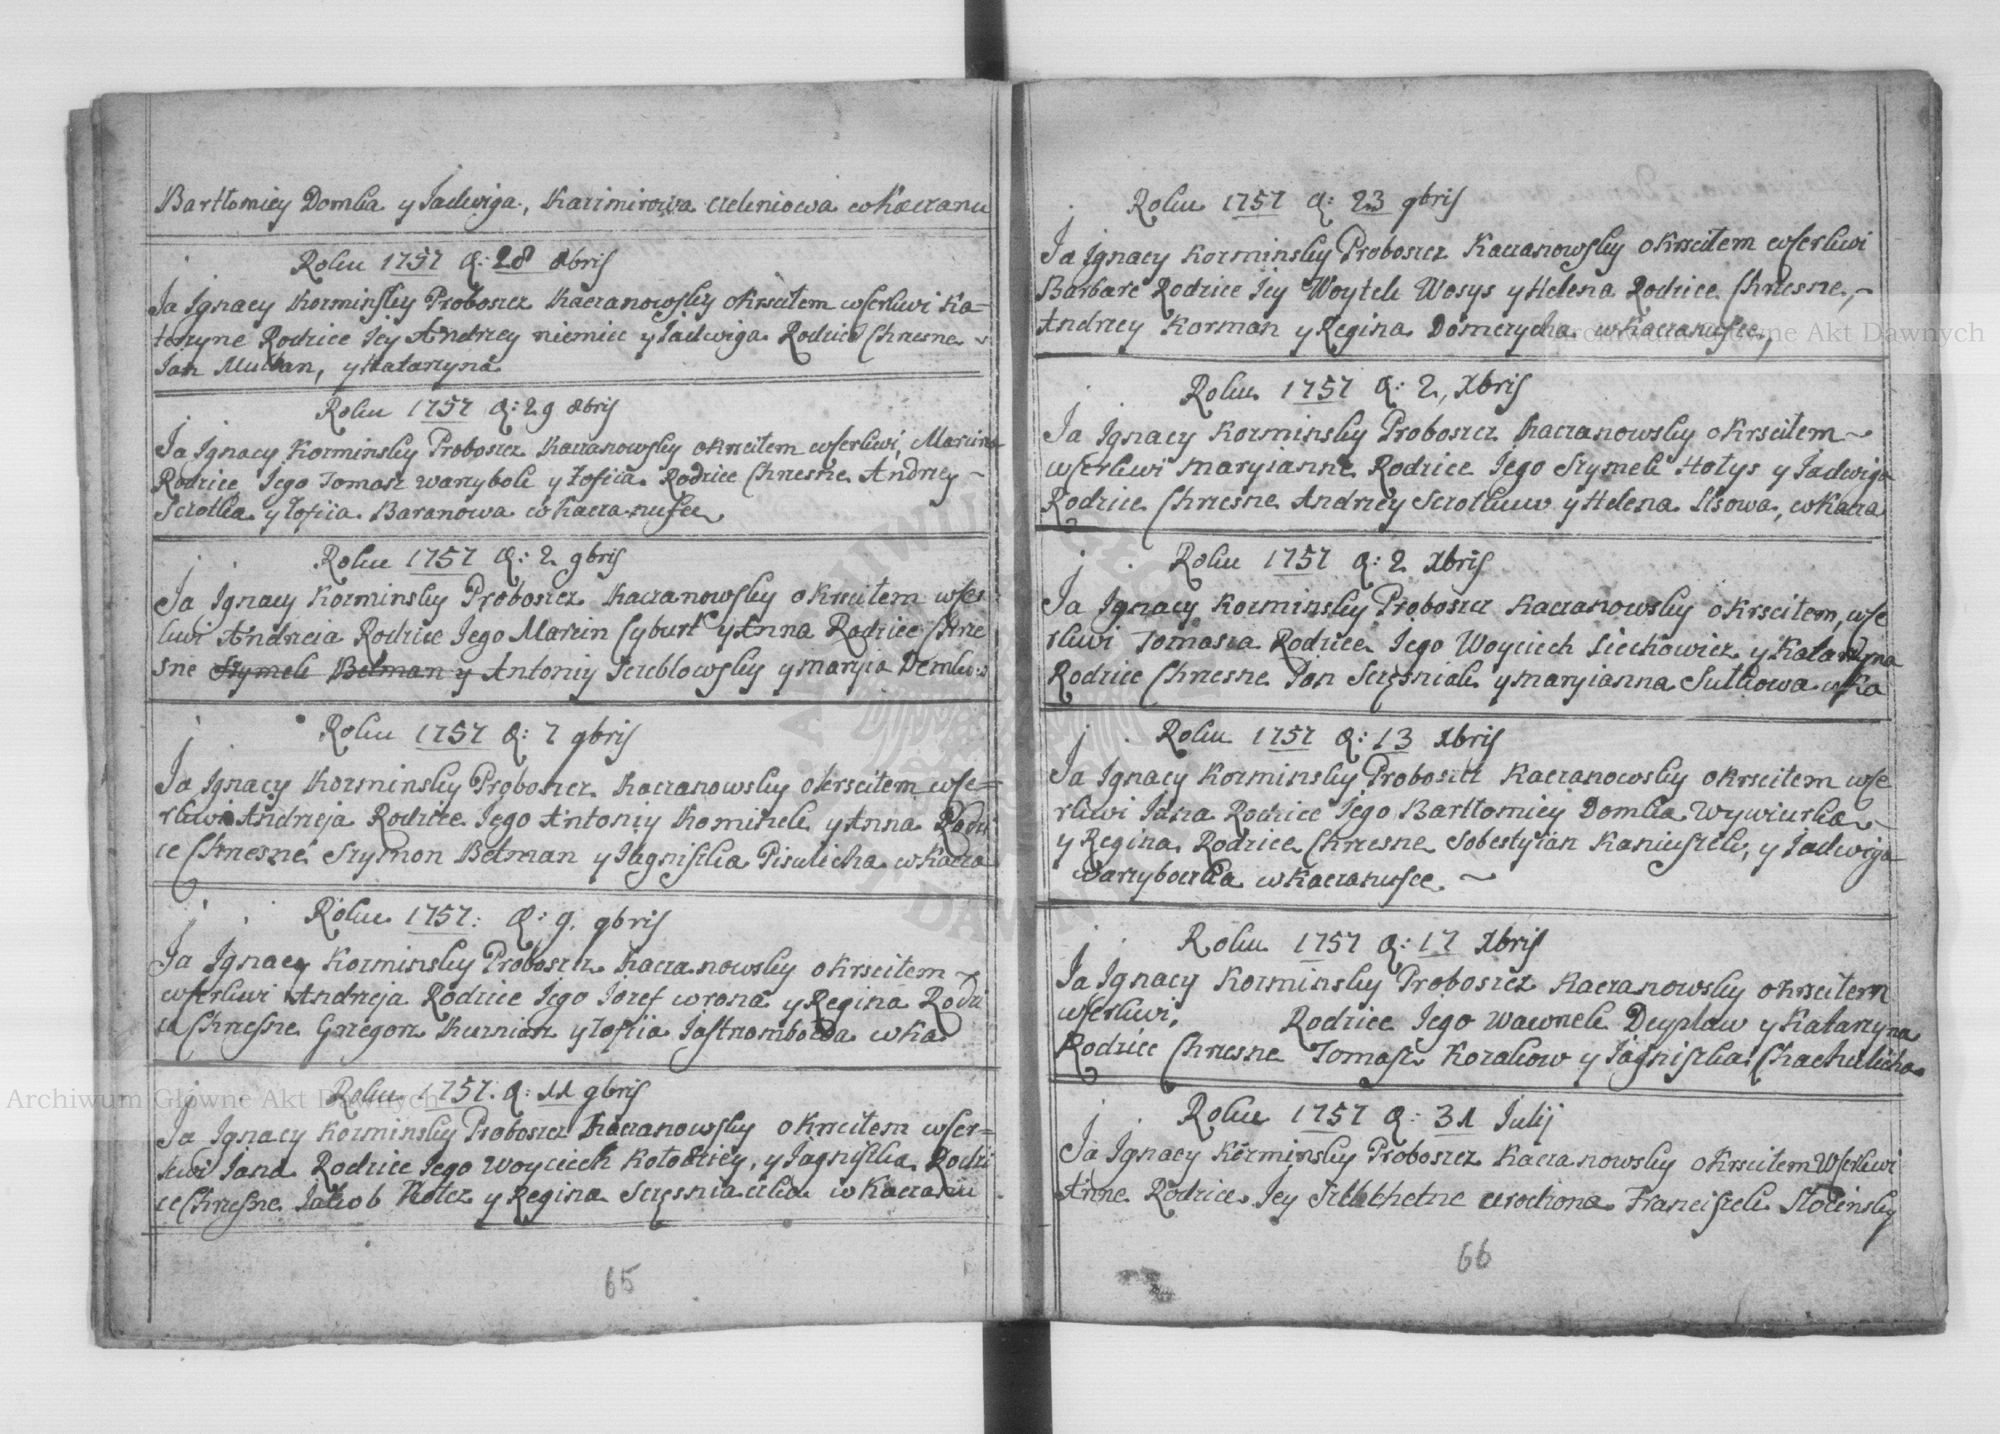 Bartłomiey Domka y Jadwiga, Kazimirowa Cieleniowa w Kaczanu
Roku 1757 d: 28 8bris
Ja Ignacy Kozminsky Proboszcz Kaczanowsky okrsciłem wserkwi Ka-
tarzyne Rodzice Jey Andrzey niemiec y Jadwiga Rodzice Chrzesne
Jan Mulban, y Katarzyna
Roku 1757 d: 29 8bris
Ja Ignacy Kozminsky Proboszcz Kaczanowsky okrsciłem wserkwi, Marcina
Rodzice Jego Tomasz Warzybok y Zofiia Rodzice Chrzesne Andrzey
Scrotka y Zofiia Baranowa w Kaczanusce
Roku 1757 d: 2 9bris
Ja Ignacy Kozminsky Proboszcz Kaczanowsky okrsciłem wser
kwi Andrzeia Rodzice Jego Marcin Cyburt y Anna Rodzice Chrze
sne Szymek Betman y Antoniy Screblowsky y Maryia
Roku 1757 d: 7 9bris
Ja Ignacy Kozminsky Proboszcz Kaczanowsky okrsciłem wse=
rkwi Andrzeja Rodzice Jego Antoniy Kominek y Anna Rodzi
ce Chrzesne Szymon Betman y Jagniszka Pisulicha w Kacza
Roku 1757: d: 9. 9bris
Ja Ignacy Kozminsky Proboszcz Kaczanowsky okrsciłem
wserkwi Andrzeja Rodzice Jego Jozef wrona y Regina Rodzi
ce Chrzesne Grzegorz Kuzniar y Zofiia Jastrzombocza w Ka
Roku 1757. d: 11 9bris
Ja Ignacy Kozminsky Proboszcz Kaczanowsky okrsciłem wser=
kwi Jana Rodzice Jego Woyciech Kołodziey, y Jagniszka Rodzi
ce Chrzesne Jakob Kotcz y Regina Sczęsniaczka w Kaczanu
65
Roku 1757 d: 23 9bris
Ja Ignacy Kozminsky Proboszcz Kaczanowsky okrsciłem wserkwi
Barbare Rodzice Jey Woytek Wosys y Helena Rodzice Chrzesne,
Andrzey Korman y Regina Domczycha w Kaczanusce,
Roku 1757 d: 2, Xbris
Ja Ignacy Kozminsky Proboszcz Kaczanowsky okrsciłem
wserkwi maryianne Rodzice Jego Szymek Hołys y Jadwiga
Rodzice Chrzesne Andrzey Scrotkuw y Helena Lisowa, w Kacza
Roku 1757 d: 2 Xbris
Ja Ignacy Kozminsky Proboszcz Kaczanowsky okrsciłem, wse
rkwi Tomasza Rodzice Jego Woyciech Ciechowicz y Katarzyna
Rodzice Chrzesne Jan Sczęsniak y maryianna Sutkowa w Ka
Roku 1757 d: 13 Xbris
Ja Ignacy Kozminsky Proboszcz Kaczanowsky okrsciłem wse
rkwi Jana Rodzice Jego Bartłomiey Domka Wywiurka
y Regina Rodzice Chrzesne Sobestyian Kaniuszek, y Jadwiga
Warzyboczka w Kaczanusce
Roku 1757 d: 17 Xbris
Ja Ignacy Kozminsky Proboszcz Kaczanowsky okrsciłem
wserkwi, Rodzice Jego Wawrzek Decyplaw y Katarzyna
Rodzice Chrzesne Tomasz Kozakow y Jagniszka Chachulicha
Roku 1757 d: 31 Julij
Ja Ignacy Kozminsky Proboszcz Kaczanowsky okrsciłem Wserkwi
Anne Rodzice Jey Szlachetne urodzona Franciszek Słocinsky
66
Archiwum Główne Akt Dawnych
Archiwum Główne Akt Dawnych